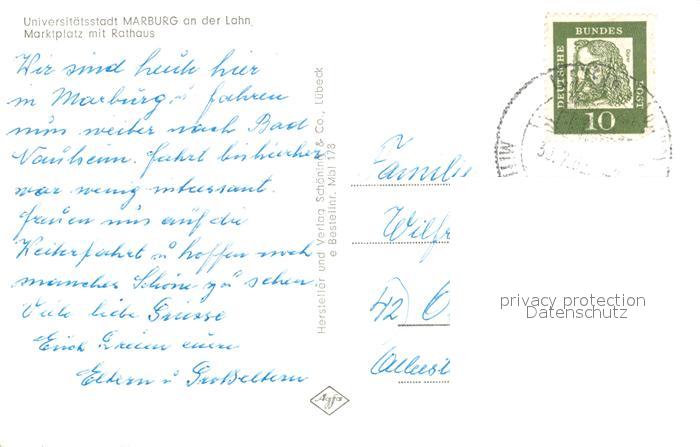 Universitätsstadt MARBURG an der Lahn
Marktplatz mit Rathaus
Wir sind heute hier
in Marburg u fahren
nun weiter nach Bad
Nauheim. Fahrt bis hierher
war wenig interessant.
freuen uns auf die
Weiterfahrt u hoffen noch
manches Schöne zu sehen
Viele liebe Grüsse
Euch Dreien eure
Eltern u Großeltern
Hersteller und Verlag Schöning & Co., Lübeck
e Bestellnr. Mbl 178
Agfa
Familie
Wilfr
42) O
DEUTSCHE
BUNDES
POST
Dürer
10
privacy protection
Datenschutz